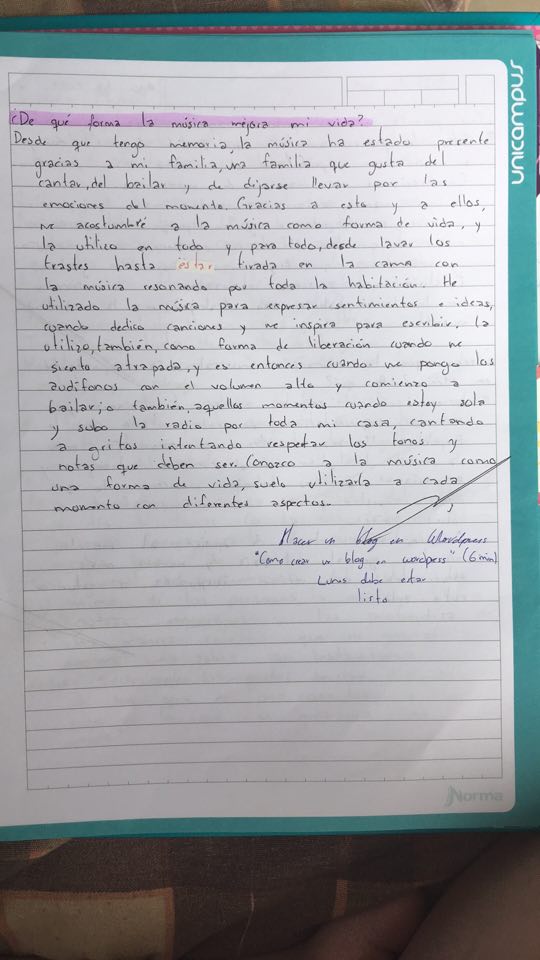 unicampus
¿De qué forma la música mejora mi vida?
Desde que tengo memoria, la música ha estado presente
gracias a mi familia, una familia que gusta del
cantar, del bailar y de dejarse llevar por las
emociones del momento. Gracias a esto y a ellos,
me acostumbré a la música como forma de vida, y
la utilizo en todo y para todo, desde lavar los
trastes hasta estar tirada en la cama con
la música resonando por toda la habitación. He
utilizado la música para expresar sentimientos e ideas,
cuando dedico canciones y me inspira para escribir. La
utilizo, también, como forma de liberación cuando me
siento atrapada, y es entonces cuando me pongo los
audífonos con el volumen alto y comienzo a
bailar; o también, aquellos momentos cuando estoy sola
y subo la radio por toda mi casa, cantando
a gritos intentando respetar los tonos y
notas que deben ser. Conozco a la música como
una forma de vida, suelo utilizarla a cada
momento con diferentes aspectos.
Hacer un blog en Wordpress
"Como crear un blog en wordpess" (6 min)
Lunes debe estar
listo
Norma